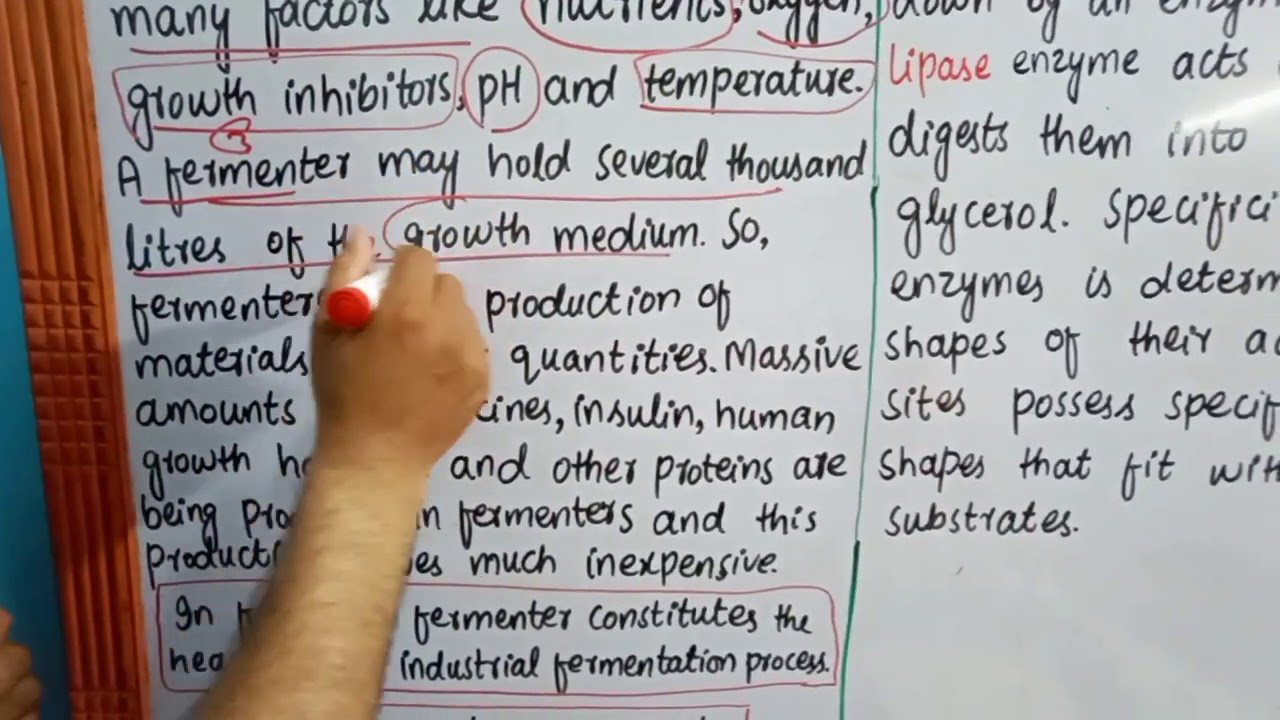 many factors like nutrients, oxygen,
growth inhibitors, pH and temperature.
3
A fermenter may hold several thousand
litres of growth medium. So,
fermenter production of
materials quantities. Massive
amounts insulin, human
growth and other proteins are
being in fermenters and this
much inexpensive.
In fermenter constitutes the
industrial fermentation process.
down by an
lipase enzyme acts
digests them into
glycerol.
enzymes is
shapes of their
sites possess
shapes that fit
substrates.